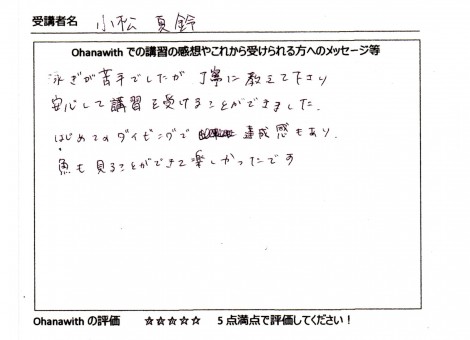 受講者名 小松 真鈴
Ohanawith での講習の感想やこれから受けられる方へのメッセージ等
泳ぎが苦手でしたが 丁寧に教えて下さり
安心して講習を受けることができました。
はじめてのダイビングで 達成感もあり、
魚も見ることができて楽しかったです
Ohanawith の評価 ☆☆☆☆☆ 5 点満点で評価してください！